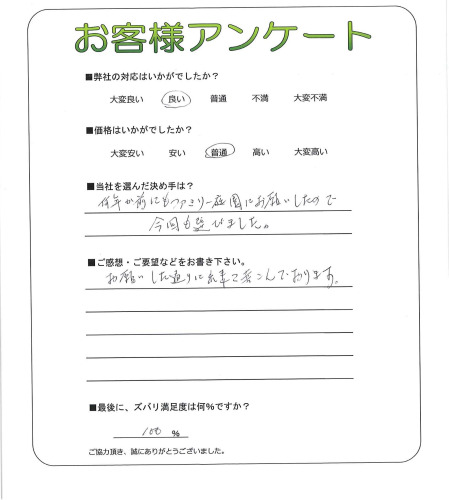 お客様アンケート
■弊社の対応はいかがでしたか?
大変良い 良い 普通 不満 大変不満
■価格はいかがでしたか?
大変安い 安い 普通 高い 大変高い
■当社を選んだ決め手は?
何年か前にもファミリー庭園にお願いしたので
今回も選びました。
■ご感想・ご要望などをお書き下さい。
お願いした通りに出来て喜こんでおります。
■最後に、ズバリ満足度は何%ですか?
100 %
ご協力頂き、誠にありがとうございました。